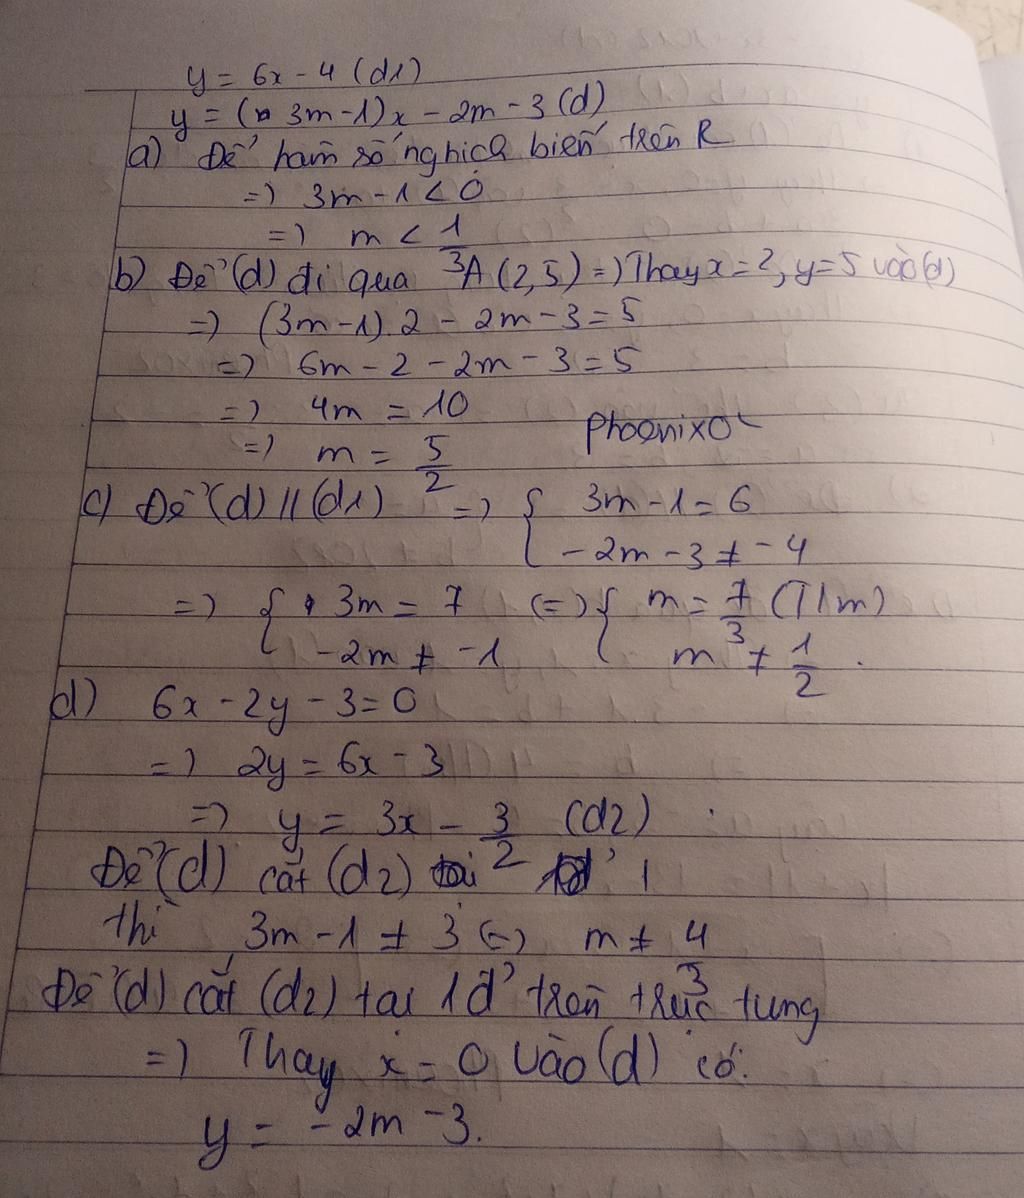 y = 6x - 4 (d1)
y = (3m - 1)x - 2m - 3 (d)
a) Để hàm số nghịch biến trên R
=) 3m - 1 < 0
=) m < 1/3
b) Để (d) đi qua A(2,5) =) Thay x = 2, y = 5 vào (d)
=) (3m - 1) 2 - 2m - 3 = 5
=) 6m - 2 - 2m - 3 = 5
=) 4m = 10
=) m = 5/2
Phoenix
c) Để (d) // (d1) =) { 3m - 1 = 6
- 2m - 3 ≠ - 4
=) { 3m = 7 (=) { m = 7/3 (T/m)
- 2m ≠ - 1 m ≠ 1/2 .
d) 6x - 2y - 3 = 0
=) 2y = 6x - 3
=) y = 3x - 3/2 (d2)
Để (d) cắt (d2) tại 1
thì 3m - 1 ≠ 3 (=) m ≠ 4/3
Để (d) cắt (d2) tại 1 đ' trên trục tung
=) Thay x = 0 vào (d) có:
y = - 2m - 3.